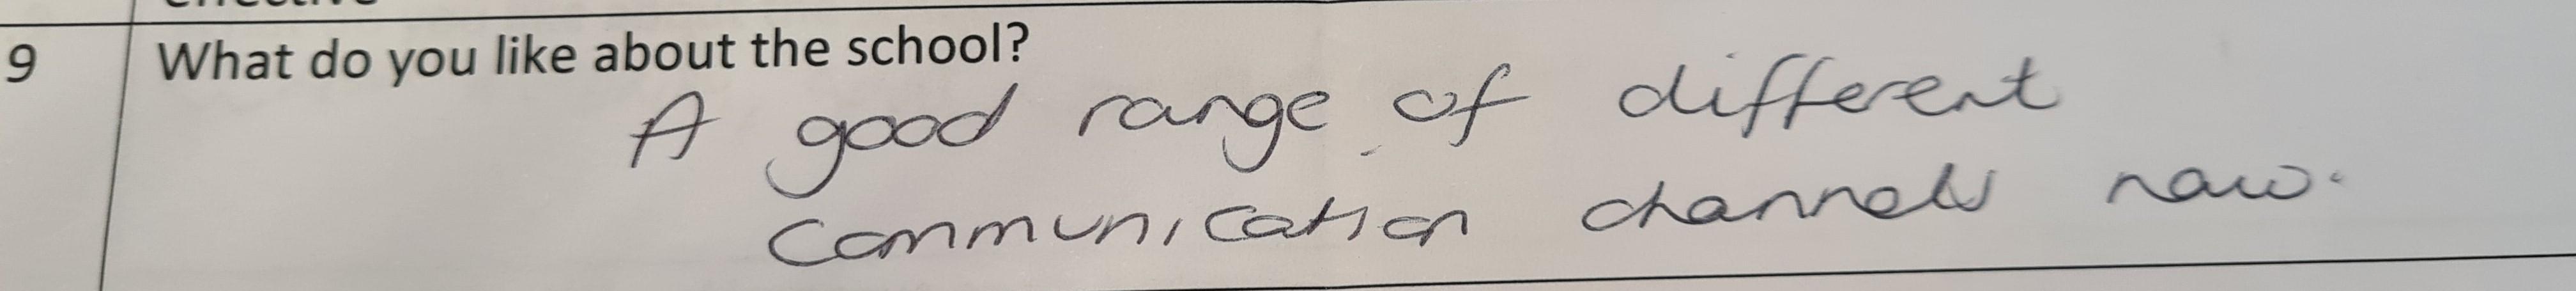 9 What do you like about the school?
A good range of different
communication channels now.